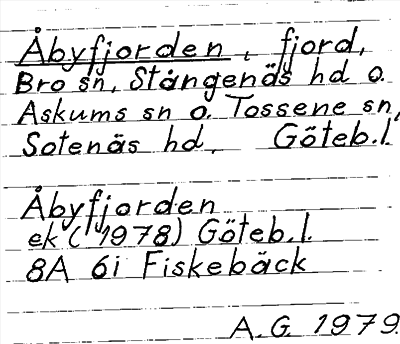 Åbyfjorden, fjord,
Bro sn, Stångenäs hd o.
Askums sn o. Tossene sn,
Sotenäs hd, Göteb.l.
Åbyfjorden
ek (1978) Göteb.l.
8A 6i Fiskebäck
A.G. 1979.